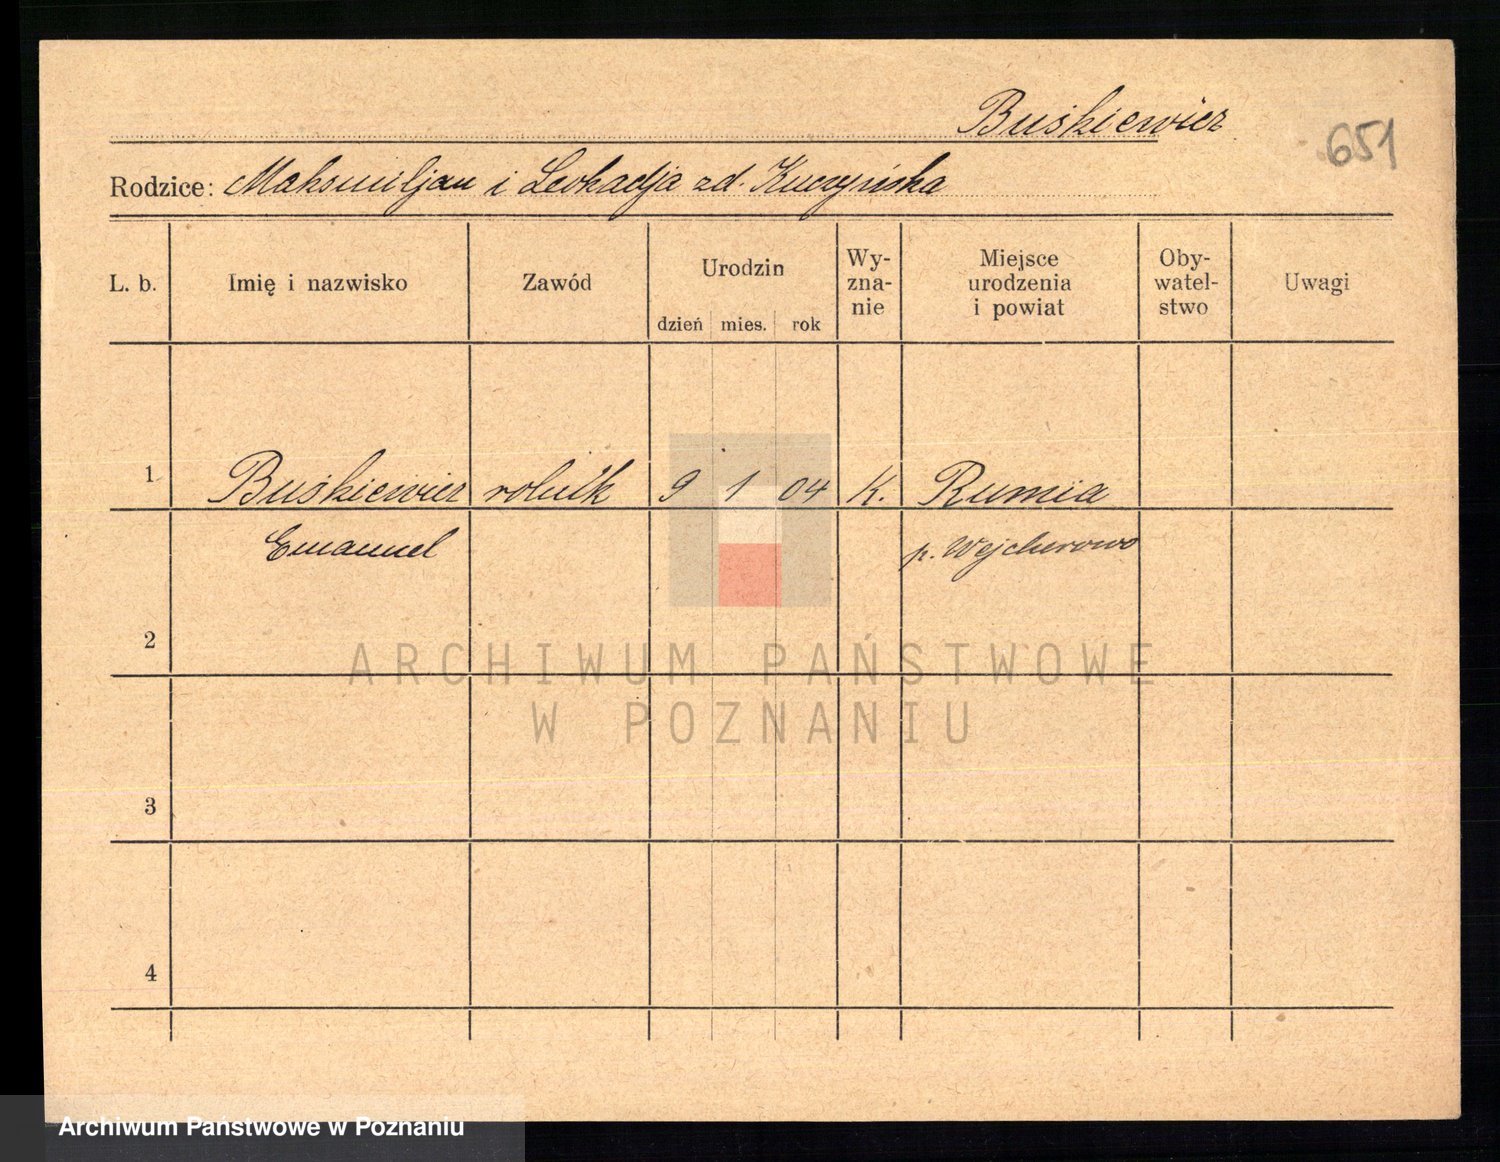 Buśkiewicz
651
Rodzice: Maksmiljan i Leokadja zd. Kuczyńska
L. b.
Imię i nazwisko
Zawód
Urodzin
dzień mies. rok
Wy-
zna-
nie
Miejsce
urodzenia
i powiat
Oby-
watel-
stwo
Uwagi
1 Buśkiewicz rolnik 9 1 04 K. Rumia
Emanuel p. Wejcherowo
2
ARCHIWUM PAŃSTWOWE
W POZNANIU
3
4
Archiwum Państwowe w Poznaniu